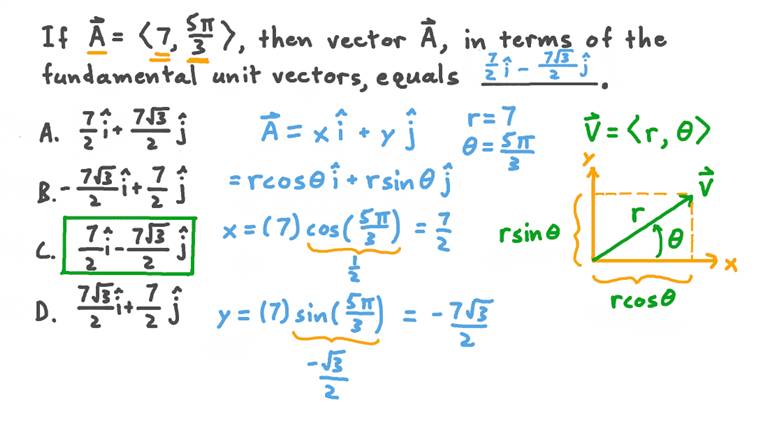 If A⃗ = ⟨7, 5π/3⟩, then vector A⃗, in terms of the
fundamental unit vectors, equals 7/2 î − 7√3/2 ĵ.
A. 7/2 î + 7√3/2 ĵ
B. −7√3/2 î + 7/2 ĵ
C. 7/2 î − 7√3/2 ĵ
D. 7√3/2 î + 7/2 ĵ
A⃗ = x î + y ĵ
= r cosθ î + r sinθ ĵ
x = (7) cos(5π/3) = 7/2
1/2
y = (7) sin(5π/3) = −7√3/2
−√3/2
r = 7
θ = 5π/3
V⃗ = ⟨r, θ⟩
y
V⃗
r
r sinθ
θ
x
r cosθ